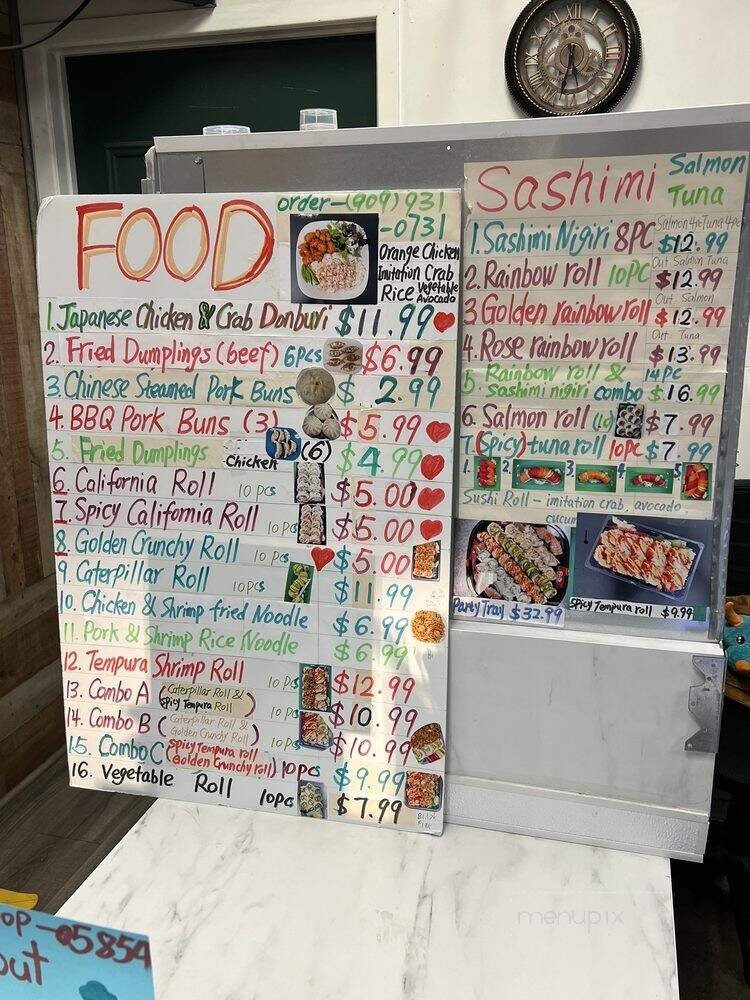 FOOD
order-(909) 931
-0731
Orange Chicken
Imitation Crab
Rice Vegetable
Avocado
1. Japanese Chicken & Crab Donburi $11.99
2. Fried Dumplings (beef) 6pcs $6.99
3. Chinese Steamed Pork Buns $ 2.99
4. BBQ Pork Buns (3) $5.99
5. Fried Dumplings (6) $4.99
Chicken
6. California Roll 10 pcs $5.00
7. Spicy California Roll 10 pcs $5.00
8. Golden Crunchy Roll 10 pcs $5.00
9. Caterpillar Roll 10pcs $11.99
10. Chicken & Shrimp fried Noodle $6.99
11. Pork & Shrimp Rice Noodle $6.99
12. Tempura Shrimp Roll 10 pcs $12.99
13. Combo A (Caterpillar Roll & Spicy Tempura Roll) 10pcs $10.99
14. Combo B (Caterpillar Roll & Golden Crunchy Roll) 10 pcs $10.99
15. Combo C (Spicy tempura roll Golden Crunchy roll) 10pcs $9.99
16. Vegetable Roll 10pc $7.99
Sashimi Salmon
Tuna
Salmon 4pc Tuna 4pc
1. Sashimi Nigiri 8PC $12.99
Out Salmon Tuna
2. Rainbow roll 10PC $12.99
Out Salmon
3 Golden rainbow roll $12.99
Out Tuna
4. Rose rainbow roll $13.99
5 Rainbow roll & 14PC
sashimi nigiri combo $16.99
6. Salmon roll $7.99
7. (Spicy) tuna roll 10pc $7.99
1. 2. 3. 4. 5
Sushi Roll - imitation crab, avocado,
cucum
Party Tray $32.99
Spicy Tempura roll $9.99
op-05854
out
menupix